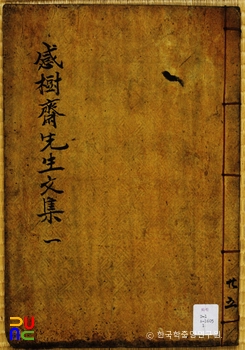 感樹齋先生文集 一
共五
© 한국학중앙연구원